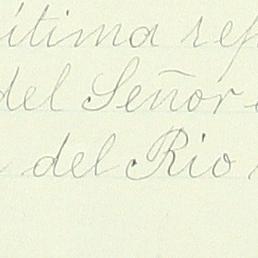 ítima rep
del Señor
del Rio